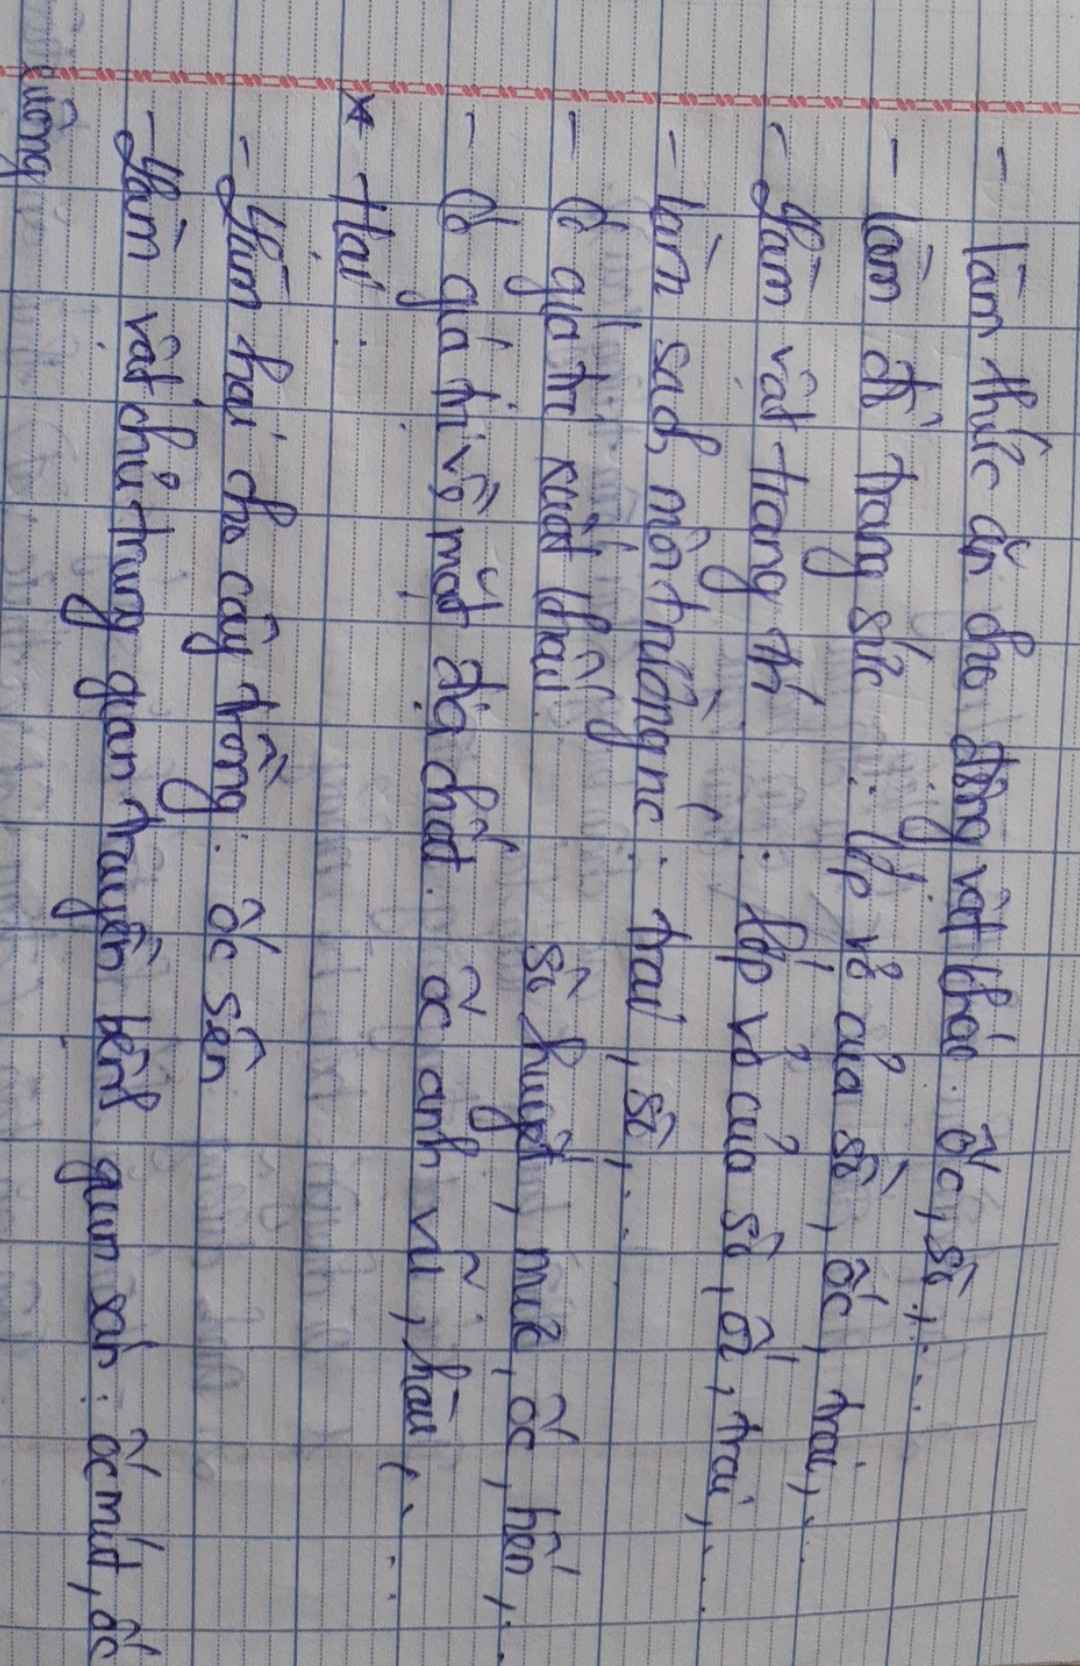 - Làm thức ăn cho động vật khác: ốc, sò,...
- làm đồ trang sức : lớp vỏ của sò, ốc, trai,...
- Làm vật trang trí : Lớp vỏ của sò, ốc, trai,...
- làm sạch môi trường nc : trai, sò,...
- Có giá trị xuất khẩu : sò huyết, mực, ốc, hến,...
- Có giá trị về mặt địa chất : ốc anh vũ, hàu,...
* Hại :
- Làm hại cho cây trồng : ốc sên
- Làm vật chủ trung gian truyền bệnh giun sán : ốc mút, ốc
ruộng